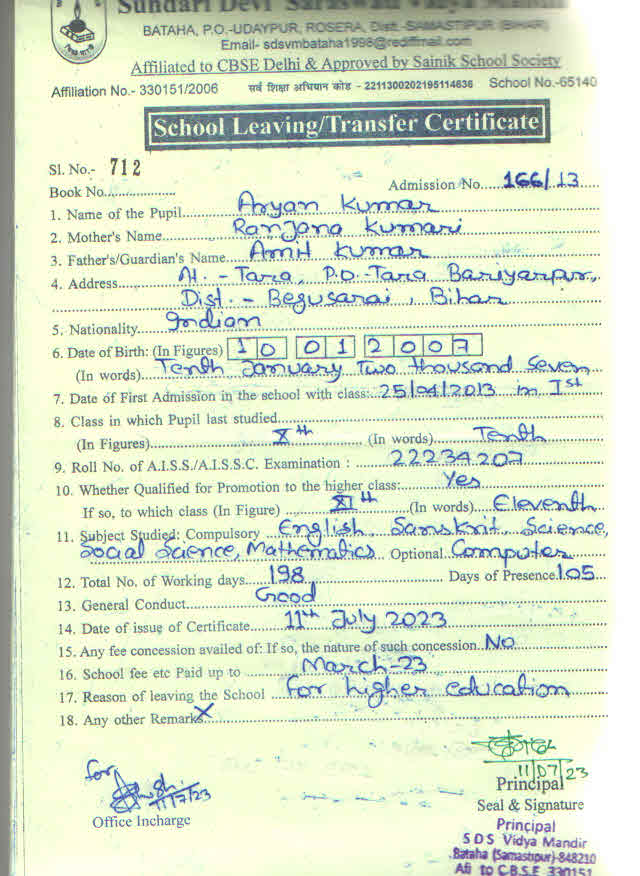 Sundari Devi Saraswati Vidya
BATAHA, P.O.-UDAYPUR, ROSERA, Dist.-SAMASTIPUR (BIHAR)
Email- sdsvmbataha1998@rediffmail.com
Affiliated to CBSE Delhi & Approved by Sainik School Society
Affiliation No.- 330151/2006 सर्व शिक्षा अभियान कोड - 2211300202195114636 School No.-65140
School Leaving/Transfer Certificate
Sl. No.- 712
Book No.................... Admission No.....166/13
1. Name of the Pupil.......Aryan Kumar
2. Mother's Name.......Ranjana Kumari
3. Father's/Guardian's Name...Amit Kumar
4. Address.......At. - Tara, P.O.-Tara Bariyarpur,
Dist. - Begusarai, Bihar
5. Nationality.......Indian
6. Date of Birth: (In Figures) 10 01 2007
(In words)....Tenth January Two thousand Seven
7. Date of First Admission in the school with class:..25/04/2013 in Ist
8. Class in which Pupil last studied
(In Figures).......Xth (In words).......Tenth
9. Roll No. of A.I.S.S./A.I.S.S.C. Examination : 22234207
10. Whether Qualified for Promotion to the higher class:......Yes
If so, to which class (In Figure) ......XIth (In words)...Eleventh
11. Subject Studied: Compulsory ...English, Sanskrit, Science,
Social Science, Mathematics Optional..Computer
12. Total No. of Working days...198 Days of Presence.105
13. General Conduct.......Good
14. Date of issue of Certificate.....11th July 2023
15. Any fee concession availed of: If so, the nature of such concession..No
16. School fee etc Paid up to .....March-23
17. Reason of leaving the School ..For higher education
18. Any other Remark X
11/07/23
Principal
Seal & Signature
for
11/7/23
Office Incharge
Principal
S D S Vidya Mandir
Bataha (Samastipur)-848210
Afi to C.B.S.E 330151